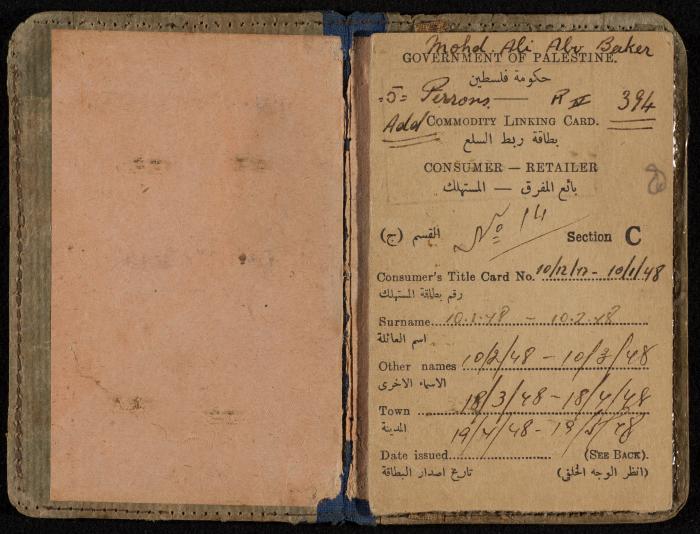 Mohd. Ali Abu Baker
GOVERNMENT OF PALESTINE.
حكومة فلسطين
=5= Persons — R IV 394
Add COMMODITY LINKING CARD.
بطاقة ربط السلع
CONSUMER — RETAILER
بائع المفرق — المستهلك
القسم (ج) No 14 Section C
Consumer's Title Card No. 10/12/47 - 10/1/48
رقم بطاقة المستهلك
Surname 10.1.48 - 10.2.48
اسم العائلة
Other names 10/2/48 - 10/3/48
الاسماء الاخرى
Town 18/3/48 - 18/4/48
المدينة
19/4/48 - 19/5/48
Date issued (SEE BACK).
تاريخ اصدار البطاقة (انظر الوجه الخلفي)